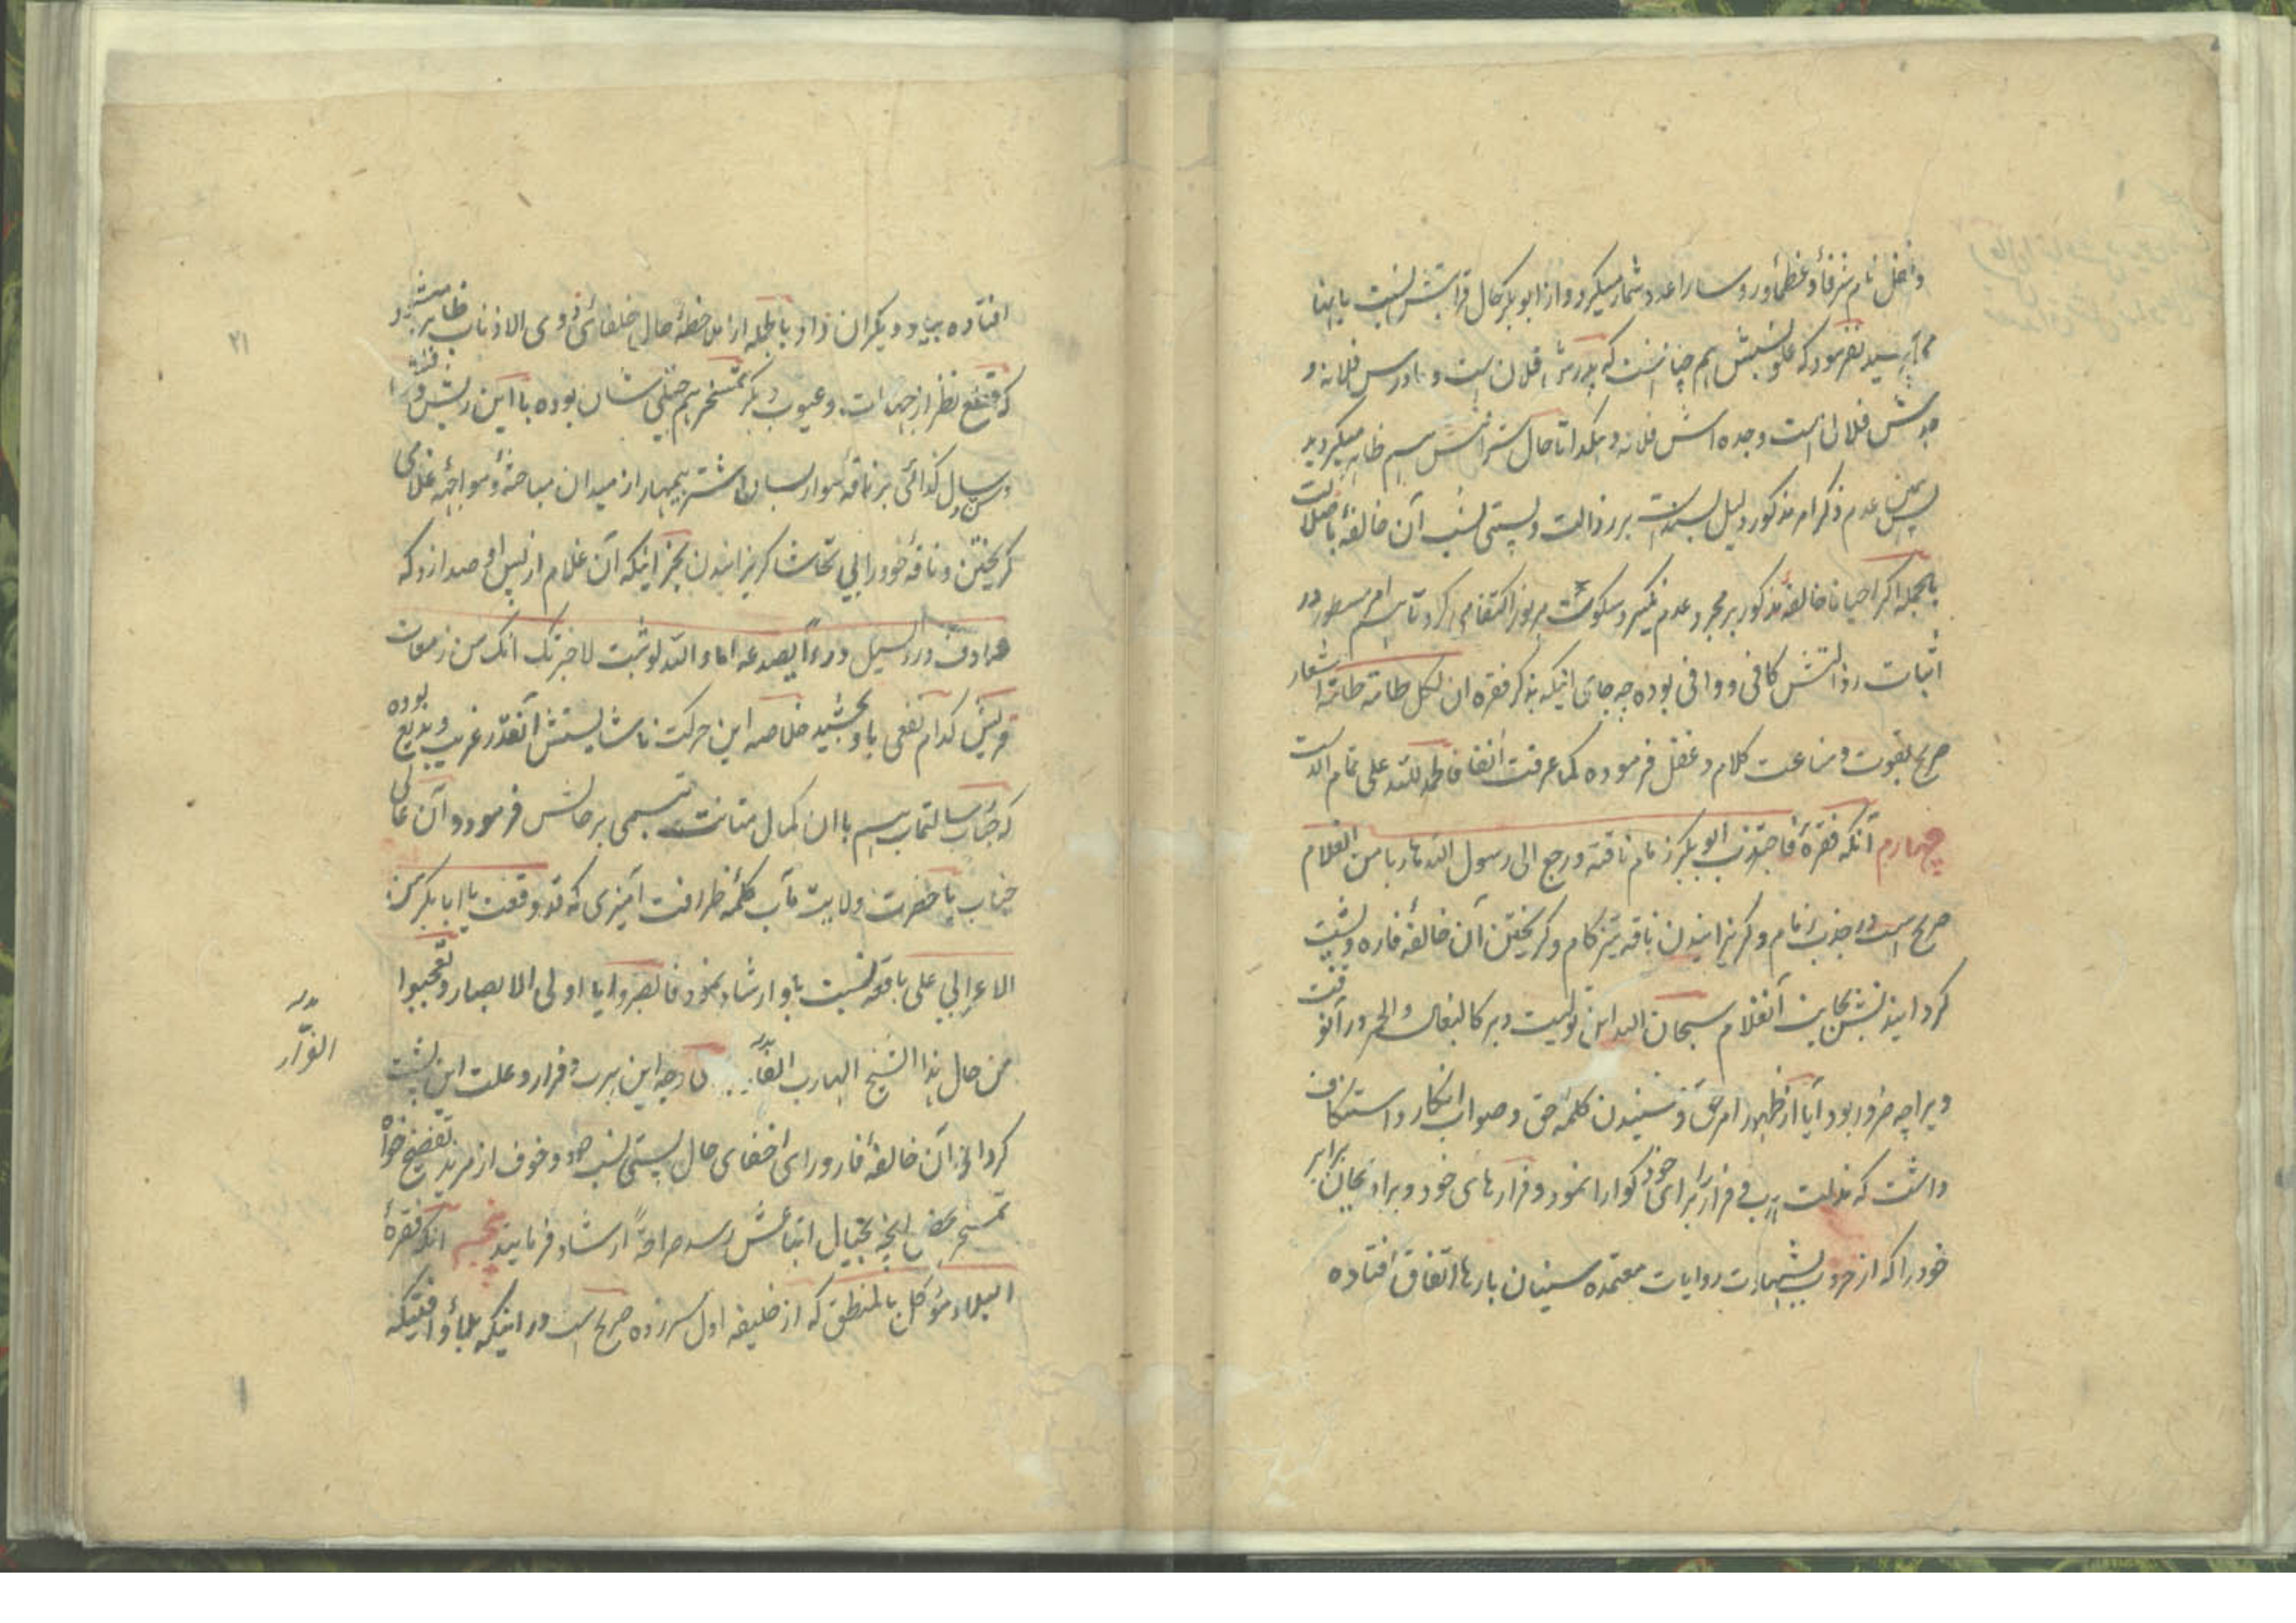 داخل نام شرفا و عظما و روسا را عد و شمار میکرد و از ابوبکر حال قرابتش نسبت باینا
می پرسید نفرمود که علو نسبش هم چنانست که پدرش فلان است و مادرش فلانه و
جدش فلان است و جده اش فلانه و هکذا تا حال شرافتش هم ظاهر میگردید
پس همین عدم ذکر امر مذکور دلیل است بر رذالت و پستی نسب آن خالفهٔ باضلالت
بالجمله اگر احیانا خالفهٔ مذکور بر مجرد عدم نکیر و سکوت مزبور اکتفا می کرد تا هم امر مسطور در
اثبات رذالتش کافی و وافی بوده چه جای اینکه بذکر فقره ان لکل طامة طامة اشعار
صریح بقوت و مناعت کلام دغفل فرموده کما عرفت انفا فالحمد لله علی تمام الست
چهارم آنکه فقرهٔ فاجتذب ابوبکر زمام ناقته و رجع الی رسول الله هاربا من الغلام
صریح است در جذب زمام و گریزانیدن ناقه تیزگام و گریختن آن خالفه فاره و پشت
گردانیدنش بجانب آنغلام سبحان الله این تولیت دبر کالبغال و الحمر در آنوقت
ویرا چه ضرور بود آیا از ظهور امر حق و شنیدن کلمهٔ حق و صواب انکار و استنکاف
داشت که مذلت هرب و فرار را برای خود گوارا نمود و فرارهای خود و برادبجان برابر
خود را که از حروب بشهادت روایات معتمده سنیان بارها اتفاق افتاده
۲۱
افتاده بیاد دیگران داد بالجمله ازین خطهٔ حال خلفای ذوی الاذناب ظاهر میشود
که قطع نظر از جهات و عیوب دیگر تمسخر هم جبلی شان بوده با این ریش و
و سن و سال کذائی بر ناقه سوار بسان اشتر بیمهار از میدان مباحثه و مواجهه غلامی
گریختن و ناقهٔ خود را بی تحاشا گریزانیدن بجز اینکه آن غلام از پس او صدا زد که
صادف درء السیل درءا یصدعه اما و الله لو ثبت لاخبرتک انک من زمعات
قریش کدام نفعی باو بخشید خلاصه این حرکت ناشایستش آنقدر غریب و بدیع بوده
که جناب رسالتماب هم با ان کمال متانت تبسمی بر حالش فرمود و آن عالی
جناب با حضرت ولایت مآب کلمهٔ ظرافت آمیزی که قد وقعت یا ابابکر من
الاعرابی علی باقعة نسبت باو ارشاد نمود فانصروا یا اولی الابصار و تعجبوا
من حال هذا الشیخ الهارب الفا وجه این هرب و فرار و علت این پشت
الفرّار
گردانی آن خالفهٔ فار ورای اخفای حال پستی نسب خود و خوف از مزید تفضیح خواه
تمسخر محض انچه بخیال اتباعش رسد صراحةً ارشاد فرمایند پنجم آنکه فقرهٔ
البلاء موکل بالمنطق که از خلیفه اول سرزده صریح است در اینکه بلا و آفتیکه